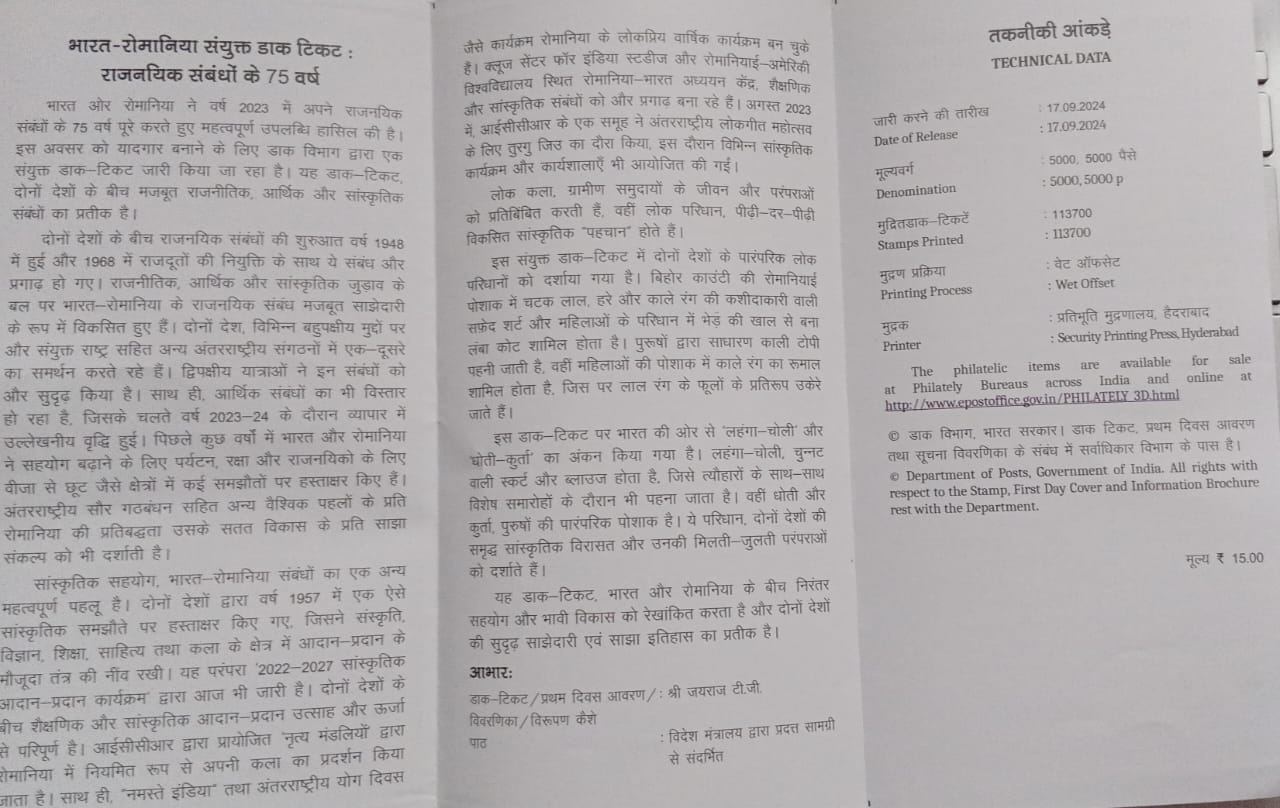 भारत-रोमानिया संयुक्त डाक टिकट :
राजनयिक संबंधों के 75 वर्ष
भारत ओर रोमानिया ने वर्ष 2023 में अपने राजनयिक
संबंधों के 75 वर्ष पूरे करते हुए महत्वपूर्ण उपलब्धि हासिल की है।
इस अवसर को यादगार बनाने के लिए डाक विभाग द्वारा एक
संयुक्त डाक–टिकट जारी किया जा रहा है। यह डाक–टिकट,
दोनों देशों के बीच मजबूत राजनीतिक, आर्थिक और सांस्कृतिक
संबंधों का प्रतीक है।
दोनों देशों के बीच राजनयिक संबंधों की शुरुआत वर्ष 1948
में हुई और 1968 में राजदूतों की नियुक्ति के साथ ये संबंध और
प्रगाढ़ हो गए। राजनीतिक, आर्थिक और सांस्कृतिक जुड़ाव के
बल पर भारत–रोमानिया के राजनयिक संबंध मजबूत साझेदारी
के रूप में विकसित हुए हैं। दोनों देश, विभिन्न बहुपक्षीय मुद्दों पर
और संयुक्त राष्ट्र सहित अन्य अंतरराष्ट्रीय संगठनों में एक–दूसरे
का समर्थन करते रहे हैं। द्विपक्षीय यात्राओं ने इन संबंधों को
और सुदृढ़ किया है। साथ ही, आर्थिक संबंधों का भी विस्तार
हो रहा है, जिसके चलते वर्ष 2023–24 के दौरान व्यापार में
उल्लेखनीय वृद्धि हुई। पिछले कुछ वर्षों में भारत और रोमानिया
ने सहयोग बढ़ाने के लिए पर्यटन, रक्षा और राजनयिको के लिए
वीजा से छूट जैसे क्षेत्रों में कई समझौतों पर हस्ताक्षर किए हैं।
अंतरराष्ट्रीय सौर गठबंधन सहित अन्य वैश्विक पहलों के प्रति
रोमानिया की प्रतिबद्धता उसके सतत विकास के प्रति साझा
संकल्प को भी दर्शाती है।
सांस्कृतिक सहयोग, भारत–रोमानिया संबंधों का एक अन्य
महत्वपूर्ण पहलू है। दोनों देशों द्वारा वर्ष 1957 में एक ऐसे
सांस्कृतिक समझौते पर हस्ताक्षर किए गए, जिसने संस्कृति,
विज्ञान, शिक्षा, साहित्य तथा कला के क्षेत्र में आदान–प्रदान के
मौजूदा तंत्र की नींव रखी। यह परंपरा '2022–2027 सांस्कृतिक
आदान–प्रदान कार्यक्रम' द्वारा आज भी जारी है। दोनों देशों के
बीच शैक्षणिक और सांस्कृतिक आदान–प्रदान उत्साह और ऊर्जा
से परिपूर्ण है। आईसीसीआर द्वारा प्रायोजित 'नृत्य मंडलियों' द्वारा
रोमानिया में नियमित रूप से अपनी कला का प्रदर्शन किया
जाता है। साथ ही, "नमस्ते इंडिया" तथा अंतरराष्ट्रीय योग दिवस
जैसे कार्यक्रम रोमानिया के लोकप्रिय वार्षिक कार्यक्रम बन चुके
हैं। क्लूज सेंटर फॉर इंडिया स्टडीज और रोमानियाई–अमेरिकी
विश्वविद्यालय स्थित रोमानिया–भारत अध्ययन केंद्र, शैक्षणिक
और सांस्कृतिक संबंधों को और प्रगाढ़ बना रहे हैं। अगस्त 2023
में, आईसीसीआर के एक समूह ने अंतरराष्ट्रीय लोकगीत महोत्सव
के लिए तुरगु जिउ का दौरा किया, इस दौरान विभिन्न सांस्कृतिक
कार्यक्रम और कार्यशालाएँ भी आयोजित की गईं।
लोक कला, ग्रामीण समुदायों के जीवन और परंपराओं
को प्रतिबिंबित करती हैं, वहीं लोक परिधान, पीढ़ी–दर–पीढ़ी
विकसित सांस्कृतिक "पहचान" होते हैं।
इस संयुक्त डाक–टिकट में दोनों देशों के पारंपरिक लोक
परिधानों को दर्शाया गया है। बिहोर काउंटी की रोमानियाई
पोशाक में चटक लाल, हरे और काले रंग की कशीदाकारी वाली
सफ़ेद शर्ट और महिलाओं के परिधान में भेड़ की खाल से बना
लंबा कोट शामिल होता है। पुरुषों द्वारा साधारण काली टोपी
पहनी जाती है, वहीं महिलाओं की पोशाक में काले रंग का रूमाल
शामिल होता है, जिस पर लाल रंग के फूलों के प्रतिरूप उकेरे
जाते हैं।
इस डाक–टिकट पर भारत की ओर से 'लहंगा–चोली' और
'धोती–कुर्ता' का अंकन किया गया है। लहंगा–चोली, चुन्नट
वाली स्कर्ट और ब्लाउज होता है, जिसे त्यौहारों के साथ–साथ
विशेष समारोहों के दौरान भी पहना जाता है। वहीं धोती और
कुर्ता, पुरुषों की पारंपरिक पोशाक है। ये परिधान, दोनों देशों की
समृद्ध सांस्कृतिक विरासत और उनकी मिलती–जुलती परंपराओं
को दर्शाते हैं।
यह डाक–टिकट, भारत और रोमानिया के बीच निरंतर
सहयोग और भावी विकास को रेखांकित करता है और दोनों देशों
की सुदृढ़ साझेदारी एवं साझा इतिहास का प्रतीक है।
आभार:
डाक–टिकट/प्रथम दिवस आवरण/ : श्री जयराज टी.जी.
विवरणिका/विरूपण कैशे
पाठ : विदेश मंत्रालय द्वारा प्रदत्त सामग्री
से संदर्भित
तकनीकी आंकड़े
TECHNICAL DATA
जारी करने की तारीख : 17.09.2024
Date of Release : 17.09.2024
मूल्यवर्ग : 5000, 5000 पैसे
Denomination : 5000,5000 p
मुद्रितडाक–टिकटें : 113700
Stamps Printed : 113700
मुद्रण प्रक्रिया : वेट ऑफसेट
Printing Process : Wet Offset
मुद्रक : प्रतिभूति मुद्रणालय, हैदराबाद
Printer : Security Printing Press, Hyderabad
The philatelic items are available for sale
at Philately Bureaus across India and online at
http://www.epostoffice.gov.in/PHILATELY_3D.html
© डाक विभाग, भारत सरकार। डाक टिकट, प्रथम दिवस आवरण
तथा सूचना विवरणिका के संबंध में सर्वाधिकार विभाग के पास है।
© Department of Posts, Government of India. All rights with
respect to the Stamp, First Day Cover and Information Brochure
rest with the Department.
मूल्य ₹ 15.00